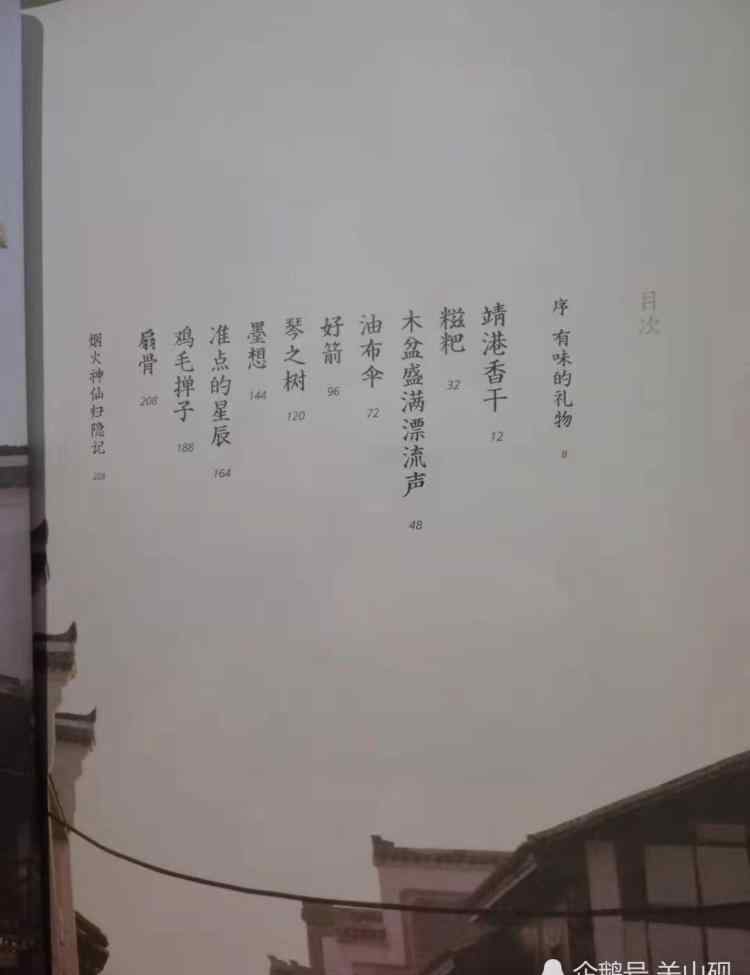 目次
序 有味的礼物 8
靖港香干 12
糍粑 32
木盆盛满漂流声 48
油布伞 72
好箭 96
琴之树 120
墨想 144
准点的星辰 164
鸡毛掸子 188
扇骨 208
烟火神仙归隐记 228
企鹅号 羊山砚